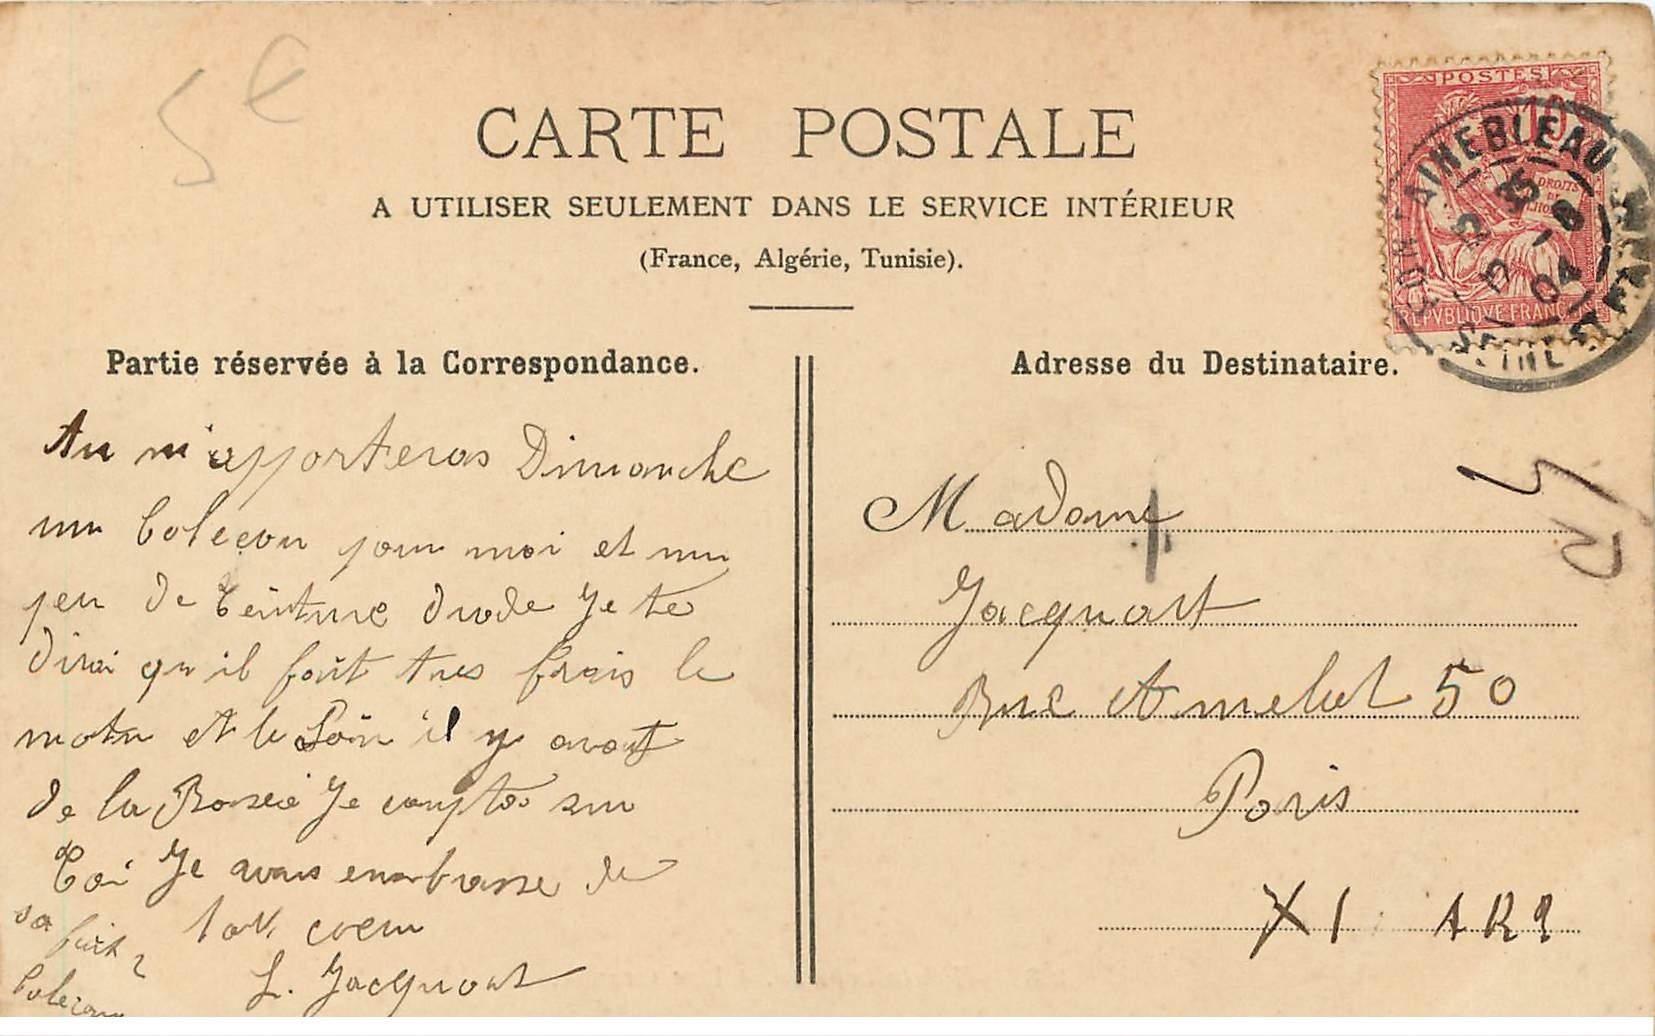 5€
CARTE POSTALE
A UTILISER SEULEMENT DANS LE SERVICE INTÉRIEUR
(France, Algérie, Tunisie).
POSTES
10
DROITS DE L'HOMME
REPVBLIQVE FRANÇAISE
FONTAINEBLEAU
12 35
12 -8
04
SEINE ET MARNE
Partie réservée à la Correspondance.
Tu m'apporteras Dimanche
un Caleçon pour moi et un
peu de teinture diode Je te
dirai qu il fait tres frais le
matin et le Soir il y avait
de la Rosée Je compte sur
toi Je vous embrasse de
tout coeur
L. Jacquart
sa fait 2
Caleçon
Adresse du Destinataire.
Madame
Jacquart
Rue Amelot 50
Paris
XI ARR